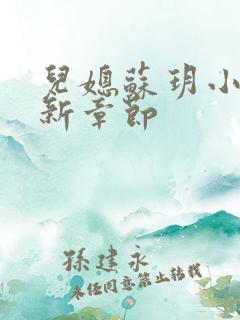 兒媳蘇玥小
新章節
孫建永
未经同意禁止转载